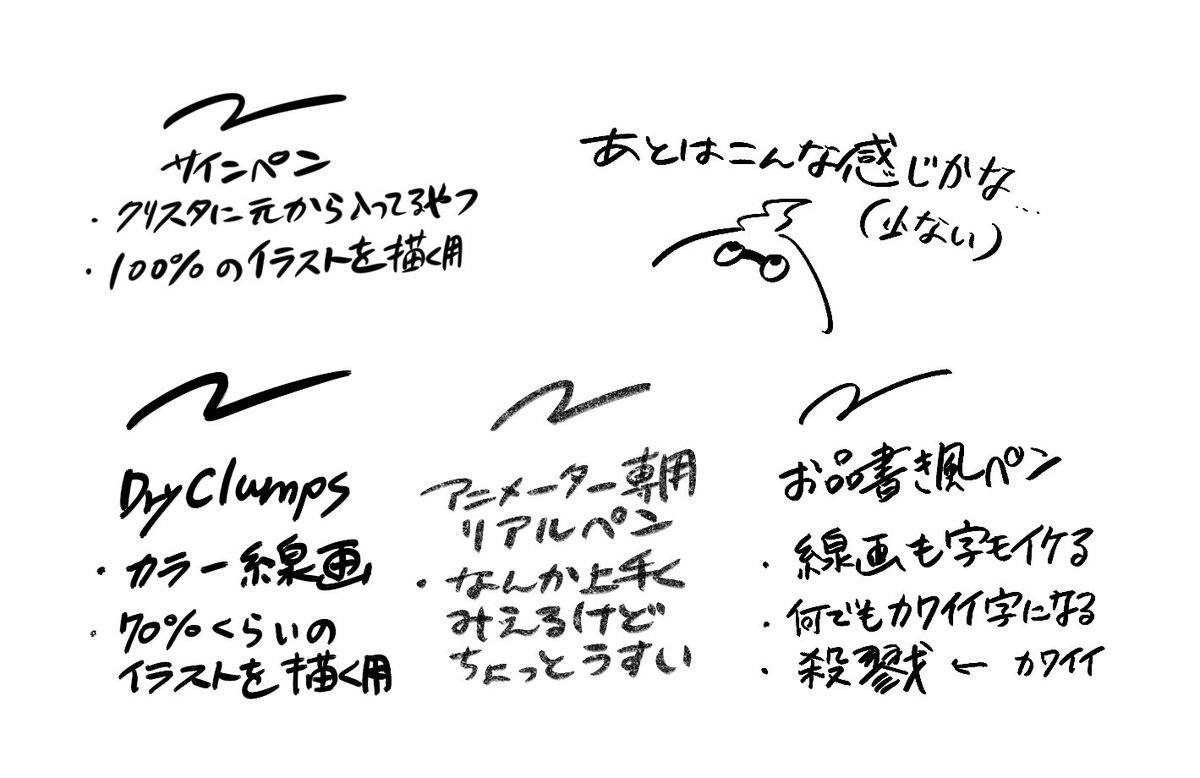 サインペン
・クリスタに元から入ってるやつ
・100%のイラストを描く用
あとはこんな感じかな…
(少ない)
Dry Clumps
・カラー線画
・70%くらいの
イラストを描く用
アニメーター専用
リアルペン
・なんか上手く
みえるけど
ちょっとうすい
お品書き風ペン
・線画も字もイケる
・何でもカワイイ字になる
・殺戮 ← カワイイ